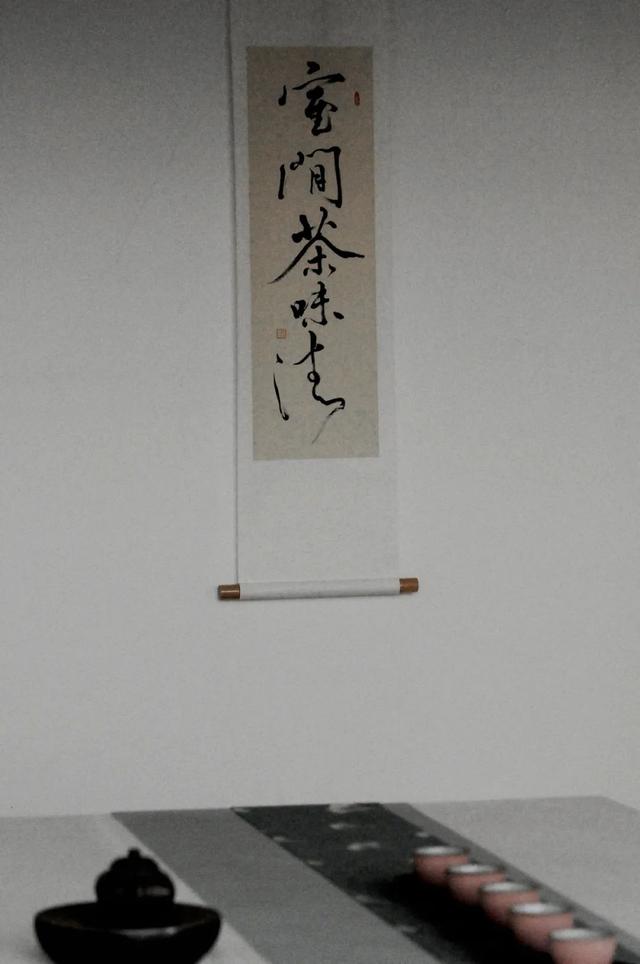 室閒茶味清